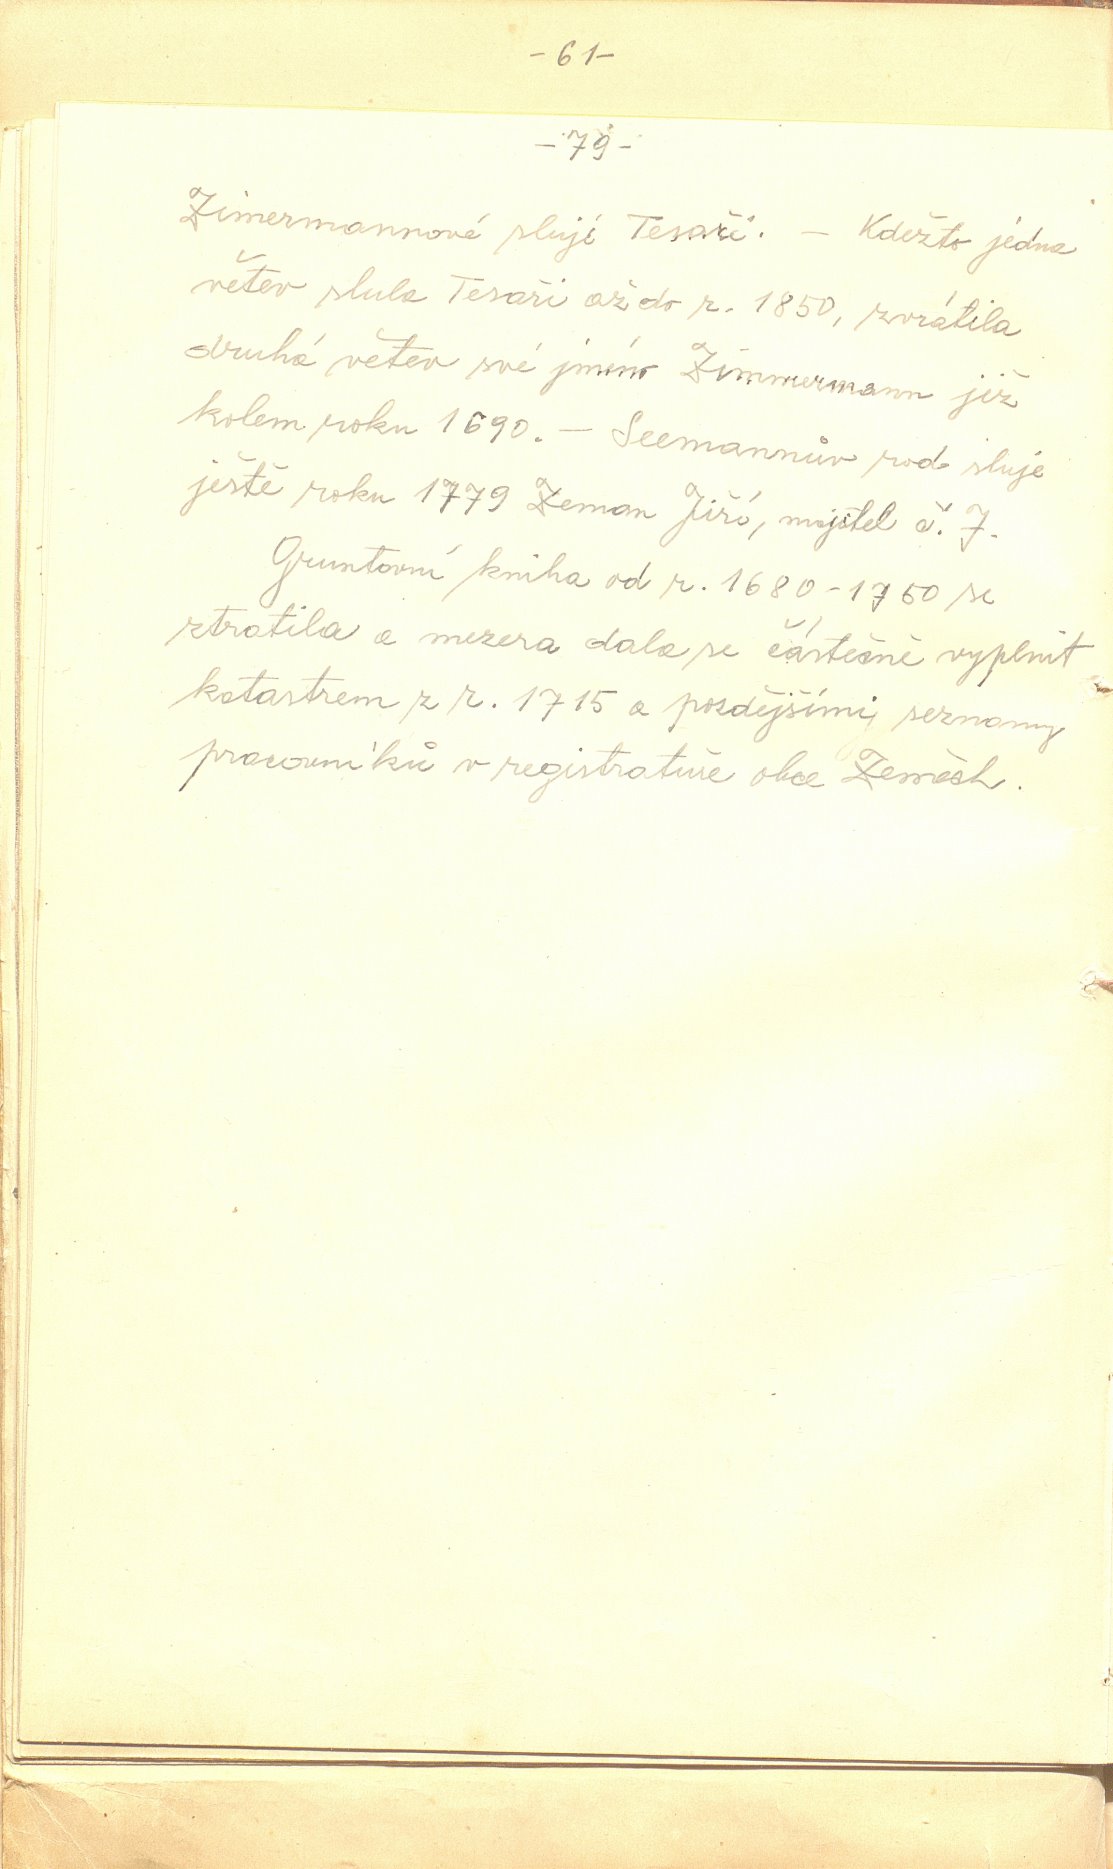 -61-
-79-
Zimermannové slují Tesaři. — Kdežto jedna
větev slula Tesaři až do r. 1850, zvrátila
druhá větev své jméno Zimmermann již
kolem roku 1690. — Seemannův rod sluje
ještě roku 1779 Zeman Jiří, majitel č. 7.
Gruntovní kniha od r. 1680-1750 se
ztratila a mezera dala se částečně vyplnit
katastrem z r. 1715 a pozdějšími seznamy
pracovníků v registratuře obce